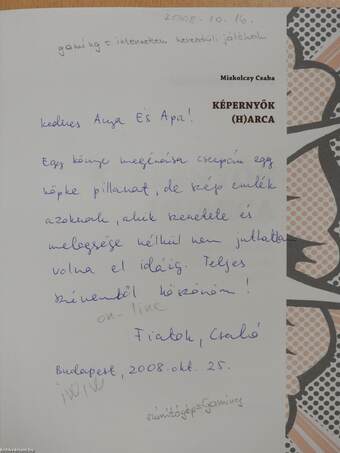 2008.10.16.
gaming = interneten keresztüli játékok
Miskolczy Csaba
KÉPERNYŐK
(H)ARCA
kedves Anya És Apa!
Egy könyv megírása csupán egy
röpke pillanat, de szép emlék
azoknak, akik szeretete és
melegsége nélkül nem juttattam
volna el idáig. Teljes
szívemből köszönöm!
on-line
Fiatok, Csabó
Budapest, 2008. okt. 25.
számítógép=Gaming